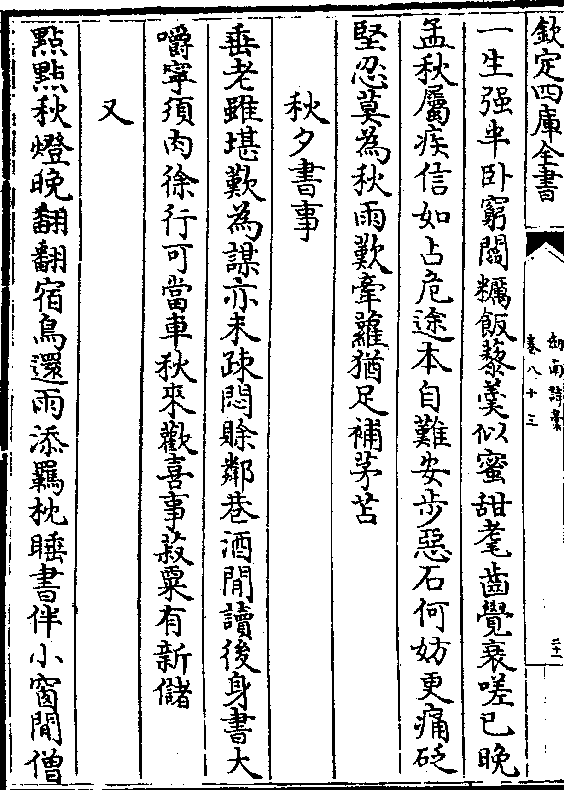 欽定四庫全書
劍南詩藁
卷八十三
二十一
一生强半卧窮閻糲飯藜羮似蜜甜耄齒覺衰嗟已晚
孟秋屬疾信如占危途本自難安步惡石何妨更痛砭
堅忍莫為秋雨歎牽蘿猶足補茅苫
秋夕書事
垂老雖堪歎為謀亦未疎悶賒鄰巷酒閒讀後身書大
嚼寧須肉徐行可當車秋來歡喜事菽粟有新儲
又
點點秋燈晚翻翻宿鳥還雨添羈枕睡書伴小窗閒僧